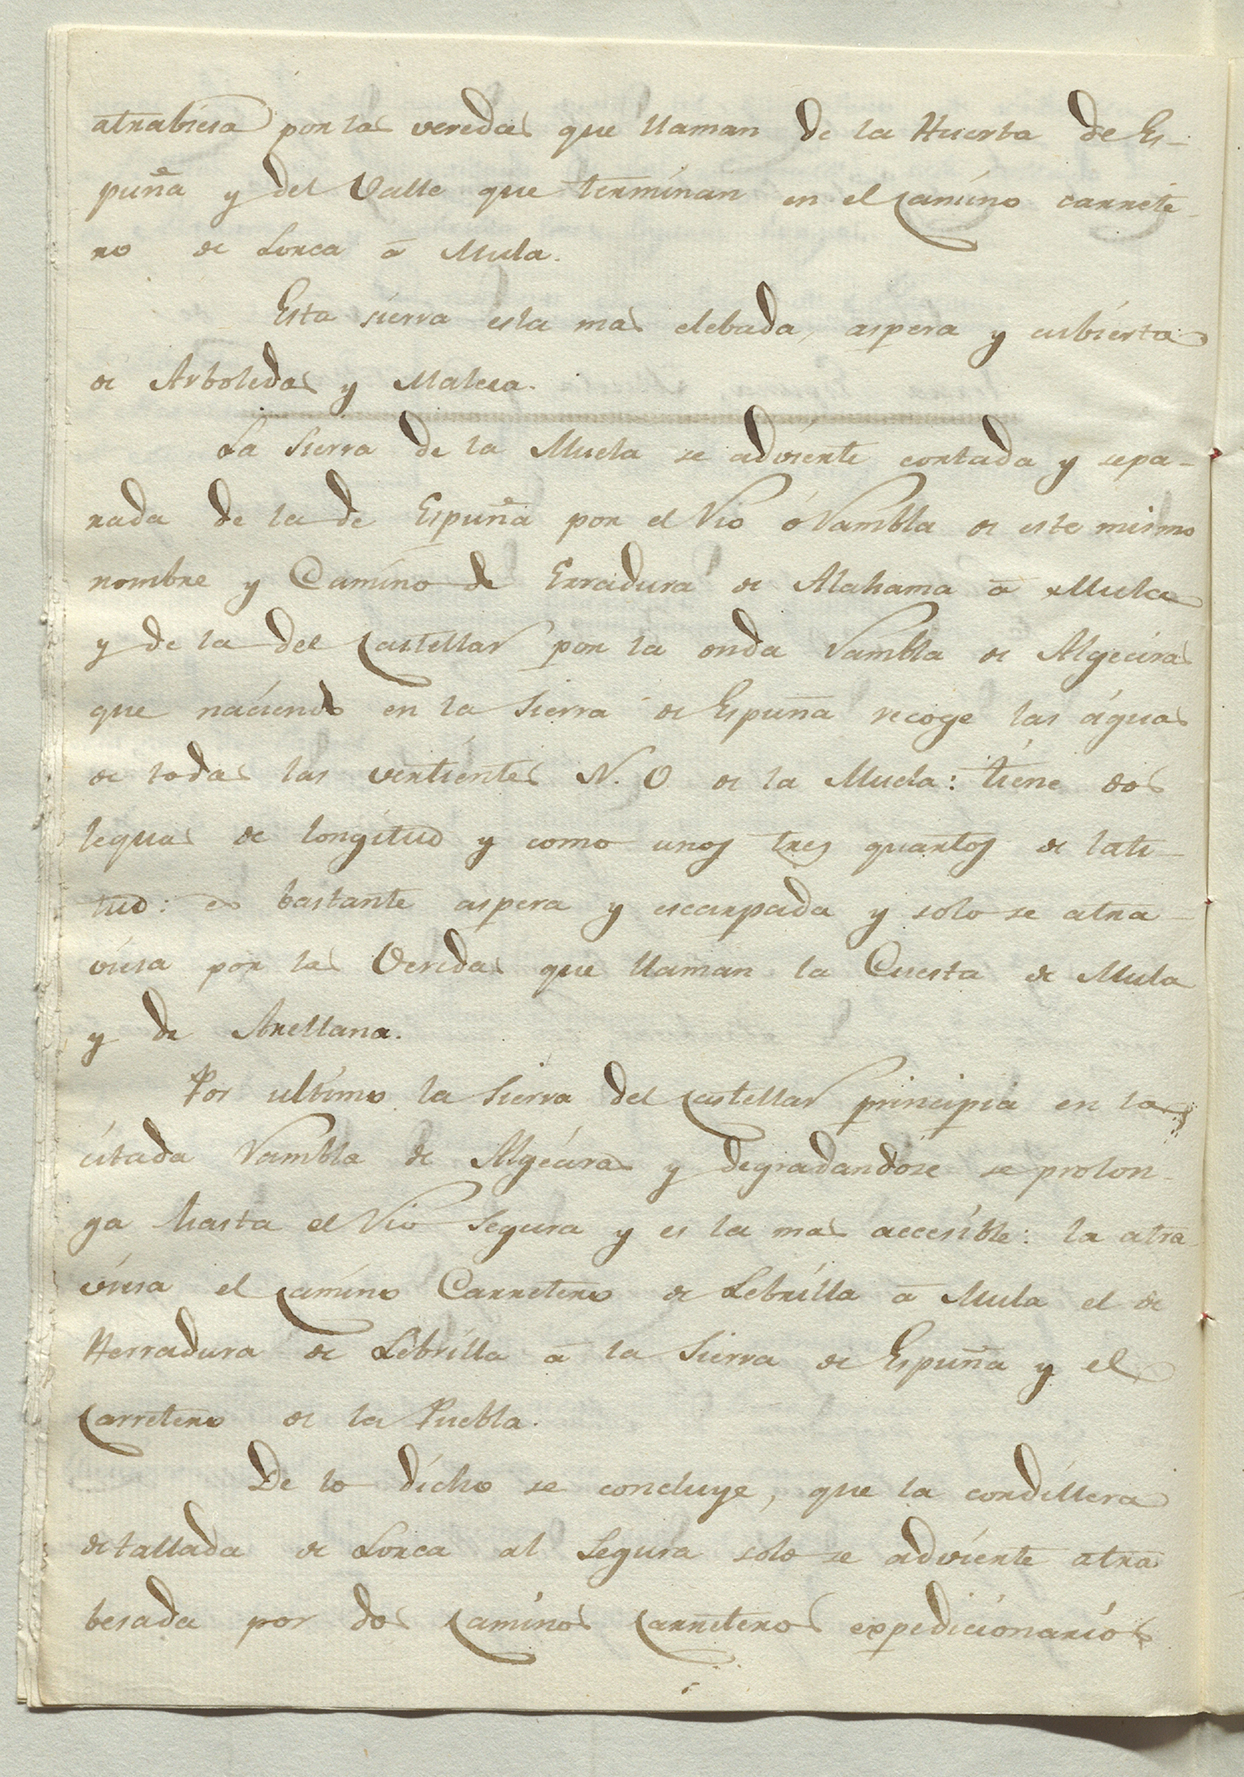 atrabiesa por las veredas que llaman de la Huerta de Es-
puña y del Valle que terminan en el camino carrete-
ro de Lorca á Mula.
Esta sierra esta mas elebada, aspera y cubierta
de Arboledas y Malesa.
La Sierra de la Muela se advierte cortada y sepa-
rada de la de Espuña por el Rio ó Rambla de este mismo
nombre y Camino de Erradura de Alahama á Mula
y de la del Castellar por la onda Rambla de Algeciras
que naciendo en la Sierra de Espuña recoge las águas
de todas las vertientes N. O de la Muela: tiene dos
leguas de longitud y como unos tres quartos de lati-
tud: es bastante aspera y escarpada y solo se atra-
viesa por las Veredas que llaman la Cuesta de Mula
y de Arellana.
Por ultimo la Sierra del Castellar principia en la
citada Rambla de Algéciras y degradandose se prolon-
ga hasta el Rio Segura y es la mas accesible: la atra
viesa el camino Carretero de Lebrilla á Mula el de
Herradura de Lebrilla á la Sierra de Espuña y el
Carretero de la Puebla.
De lo dicho se concluye, que la cordillera
detallada de Lorca al Segura solo se advierte atra
besada por dos Caminos Carreteros expedicionarios